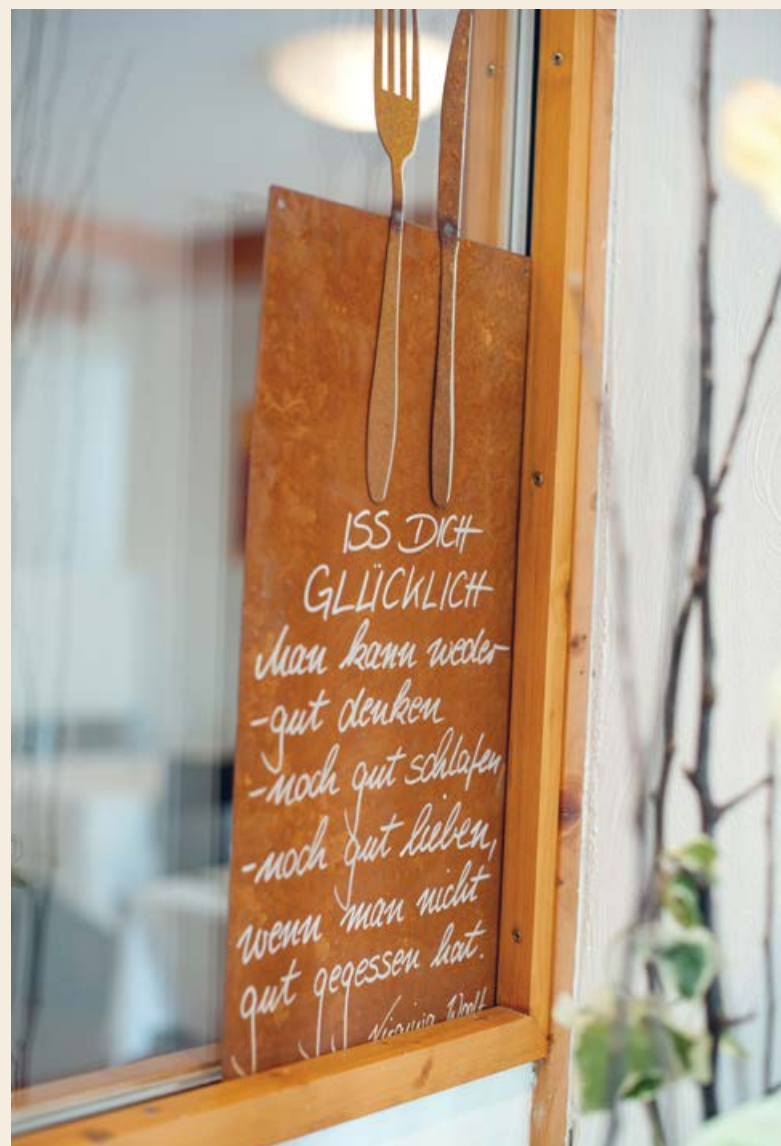 ISS DICH
GLÜCKLICH
Man kann weder
-gut denken
-noch gut schlafen,
-noch gut lieben,
wenn man nicht
gut gegessen hat.
Virginia Woolf